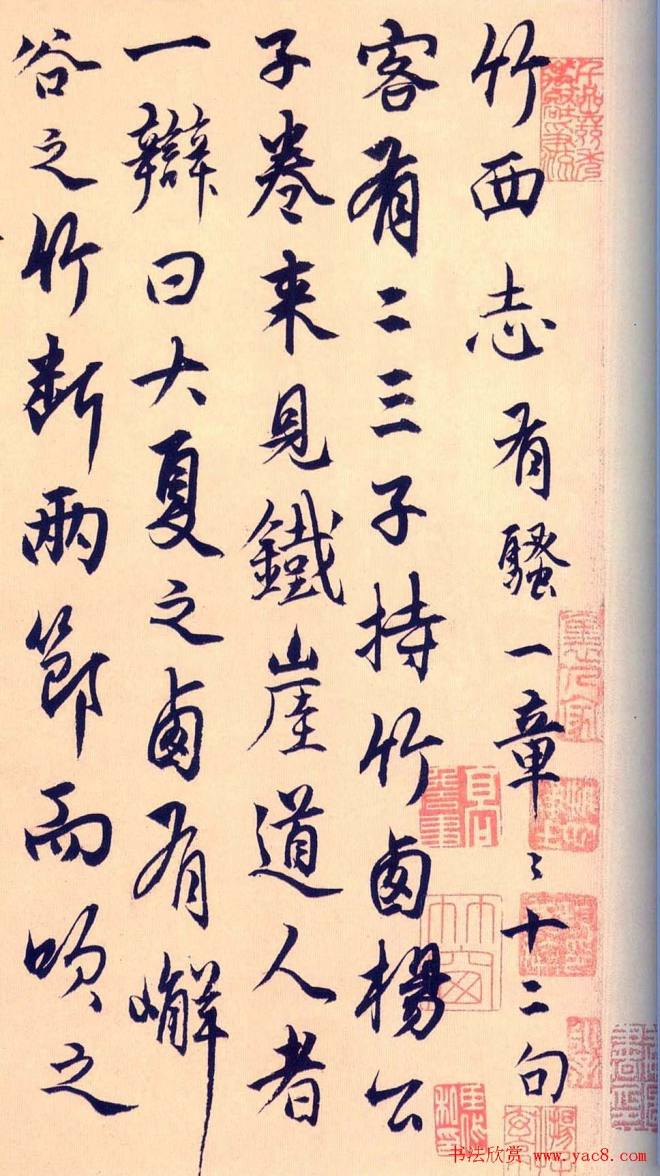 竹西志有騷一章〻十二句
客有二三子持竹卥楊公
子卷来見鐵崖道人者
一辯曰大夏之卥有嶰
谷之竹断兩節而吹之
书法欣赏 www.yac8.com